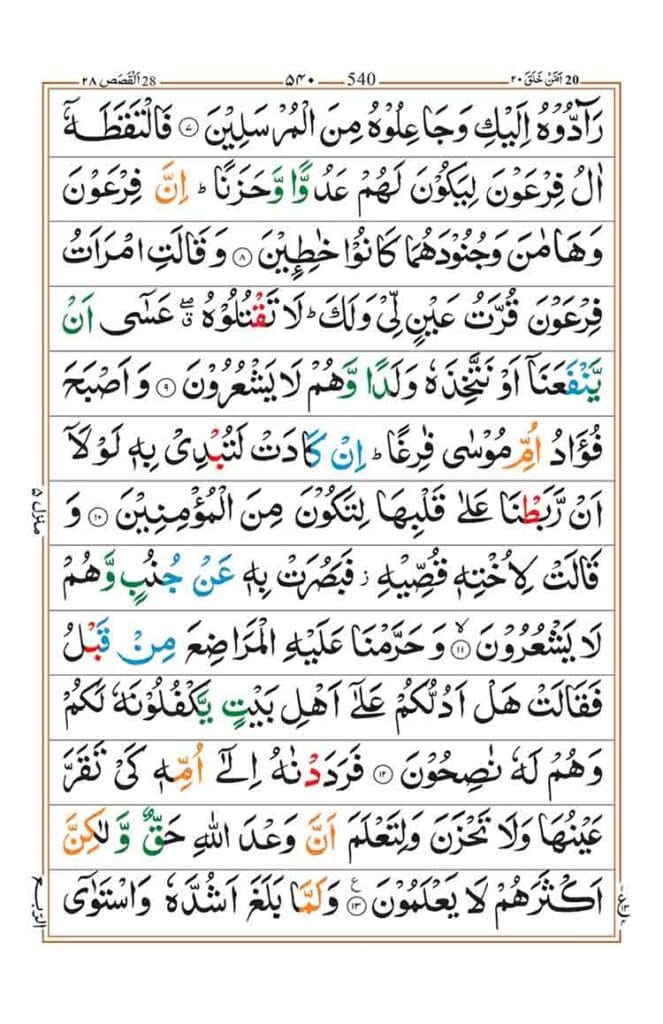 20 اَمَّنْ خَلَقَ ٢٠
540 ۵۴۰
28 اَلْقَصَص ٢٨
رَآدُّوْهُ اِلَيْكِ وَجَاعِلُوْهُ مِنَ الْمُرْسَلِيْنَ ۷ فَالْتَقَطَهٗۤ
اٰلُ فِرْعَوْنَ لِيَكُوْنَ لَهُمْ عَدُوًّا وَّحَزَنًا ؕ اِنَّ فِرْعَوْنَ
وَهَامٰنَ وَجُنُوْدَهُمَا كَانُوْا خٰطِـِٕيْنَ ۸ وَقَالَتِ امْرَاَتُ
فِرْعَوْنَ قُرَّتُ عَيْنٍ لِّىْ وَلَكَ ؕ لَا تَقْتُلُوْهُ ۖ ق عَسٰٓى اَنْ
يَّنْفَعَنَاۤ اَوْ نَتَّخِذَهٗ وَلَدًا وَّهُمْ لَا يَشْعُرُوْنَ ۹ وَاَصْبَحَ
فُؤَادُ اُمِّ مُوْسٰى فٰرِغًا ؕ اِنْ كَادَتْ لَتُبْدِىْ بِهٖ لَوْلَاۤ
اَنْ رَّبَطْنَا عَلٰى قَلْبِهَا لِتَكُوْنَ مِنَ الْمُؤْمِنِيْنَ ۱۰ وَ
قَالَتْ لِاُخْتِهٖ قُصِّيْهِ ز فَبَصُرَتْ بِهٖ عَنْ جُنُبٍ وَّهُمْ
لَا يَشْعُرُوْنَ ۙ ۱۱ وَحَرَّمْنَا عَلَيْهِ الْمَرَاضِعَ مِنْ قَبْلُ
فَقَالَتْ هَلْ اَدُلُّكُمْ عَلٰٓى اَهْلِ بَيْتٍ يَّكْفُلُوْنَهٗ لَكُمْ
وَهُمْ لَهٗ نٰصِحُوْنَ ۱۲ فَرَدَدْنٰهُ اِلٰٓى اُمِّهٖ كَىْ تَقَرَّ
عَيْنُهَا وَلَا تَحْزَنَ وَلِتَعْلَمَ اَنَّ وَعْدَ اللّٰهِ حَقٌّ وَّلٰكِنَّ
اَكْثَرَهُمْ لَا يَعْلَمُوْنَ ۱۳ ع وَلَمَّا بَلَغَ اَشُدَّهٗ وَاسْتَوٰٓى
منزل ۵
الربع